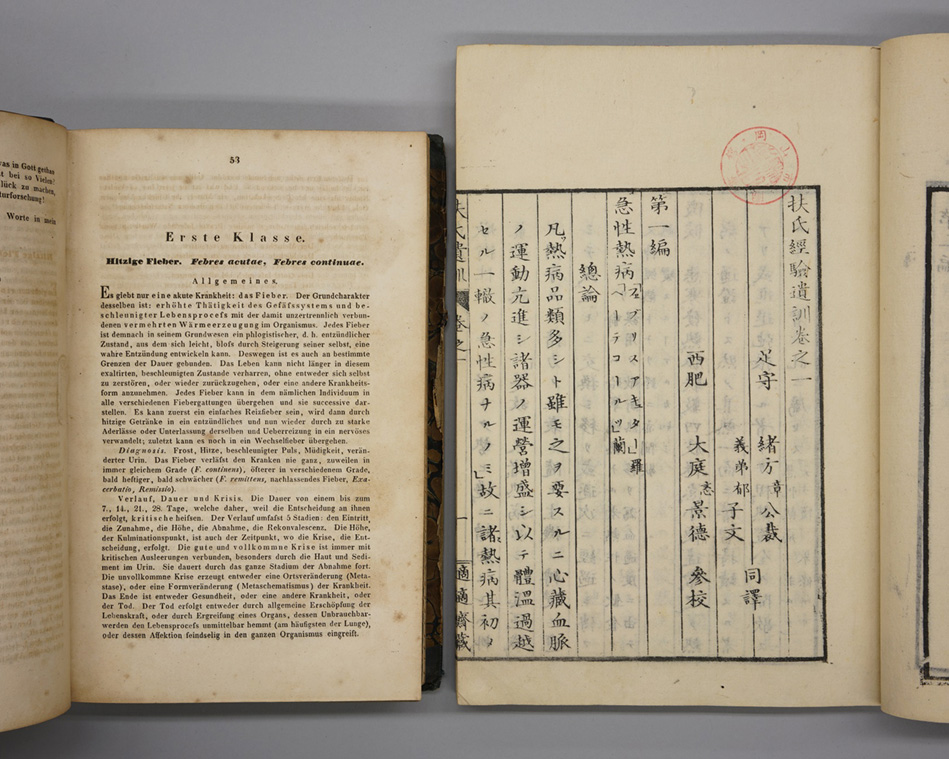 was in Gott gethan
t bei so Vielen!
lück zu machen,
turforschung!
Worte in mein
53
Erste Klasse.
Hitzige Fieber. Febres acutae, Febres continuae.
Allgemeines.
Es giebt nur eine akute Krankheit: das Fieber. Der Grundcharakter
desselben ist: erhöhte Thätigkeit des Gefäfssystems und be-
schleunigter Lebensprocefs mit der damit unzertrennlich verbun-
denen vermehrten Wärmeerzeugung im Organismus. Jedes Fieber
ist demnach in seinem Grundwesen ein phlogistischer, d. h. entzündlicher
Zustand, aus dem sich leicht, blofs durch Steigerung seiner selbst, eine
wahre Entzündung entwickeln kann. Deswegen ist es auch an bestimmte
Grenzen der Dauer gebunden. Das Leben kann nicht länger in diesem
exaltirten, beschleunigten Zustande verharren, ohne entweder sich selbst
zu zerstören, oder wieder zurückzugehen, oder eine andere Krankheits-
form anzunehmen. Jedes Fieber kann in dem nämlichen Individuum in
alle verschiedenen Fiebergattungen übergehen und sie successive dar-
stellen. Es kann zuerst ein einfaches Reizfieber sein, wird dann durch
hitzige Getränke in ein entzündliches und nun wieder durch zu starke
Aderlässe oder Unterlassung derselben und Ueberreizung in ein nervöses
verwandelt; zuletzt kann es noch in ein Wechselfieber übergehen.
Diagnosis. Frost, Hitze, beschleunigter Puls, Müdigkeit, verän-
derter Urin. Das Fieber verläfst den Kranken nie ganz, zuweilen in
immer gleichem Grade (F. continens), öfterer in verschiedenem Grade,
bald heftiger, bald schwächer (F. remittens, nachlassendes Fieber, Exa-
cerbatio, Remissio).
Verlauf, Dauer und Krisis. Die Dauer von einem bis zum
7., 14., 21., 28. Tage, welche daher, weil die Entscheidung an ihnen
erfolgt, kritische heifsen. Der Verlauf umfafst 5 Stadien: den Eintritt,
die Zunahme, die Höhe, die Abnahme, die Rekonvalescenz. Die Höhe,
der Kulminationspunkt, ist auch der Zeitpunkt, wo die Krise, die Ent-
scheidung, erfolgt. Die gute und vollkommne Krise ist immer mit
kritischen Ausleerungen verbunden, besonders durch die Haut und Sedi-
ment im Urin. Sie dauert durch das ganze Stadium der Abnahme fort.
Die unvollkommne Krise erzeugt entweder eine Ortsveränderung (Meta-
stase), oder eine Formveränderung (Metaschematismus) der Krankheit.
Das Ende ist entweder Gesundheit, oder eine andere Krankheit, oder
der Tod. Der Tod erfolgt entweder durch allgemeine Erschöpfung der
Lebenskraft, oder durch Ergreifung eines Organs, dessen Unbrauchbar-
werden den Lebensprocefs unmittelbar hemmt (am häufigsten der Lunge),
oder dessen Affektion feindselig in den ganzen Organismus eingreift.
扶氏經驗遺訓卷之一
足守 緒方章公裁
義弟郁子文 同譯
西肥 大庭忞景德 參校
第一編
急性熱病 羅 蘭
總論
凡熱病品類多シト雖モ之ヲ要スルニ心藏血脈
ノ運動亢進シ諸器ノ運營增盛シ以テ體溫過越
セル一轍ノ急性病ナルノミ故ニ諸熱病其初メ
扶氏遺訓 卷之一 一 適適齋藏